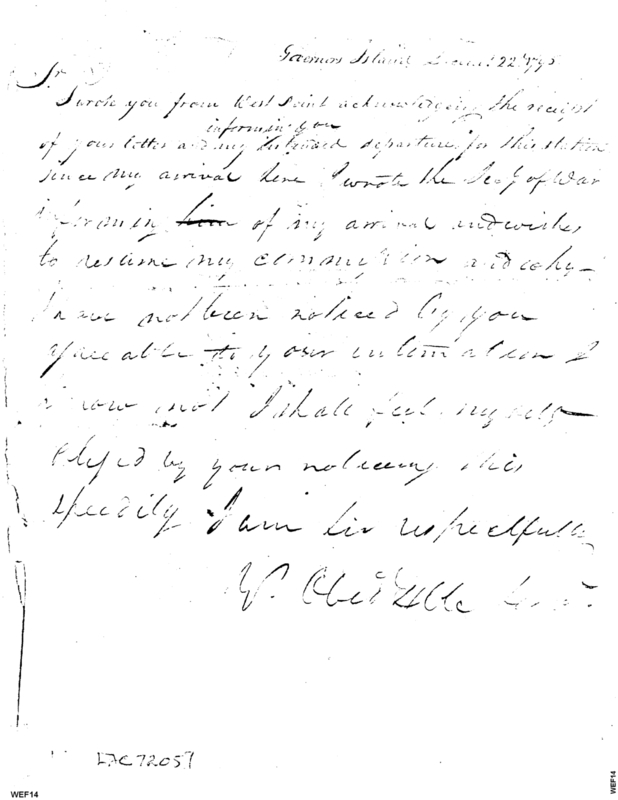 Governors Island 22 1795
Sr.
I wrote you from West Point acknowledging the receipt
informing you
of your letter and my intended departure for this station
since my arrival here I wrote the Secy of War
informing him of my arrival and wishes
to resume my commission and why
I have not been noticed by you
agreeable to your intimation I
know not I shall feel myself
by your noticing this
speedily I am Sir respectfully
LJC72057
WEF14
WEF14